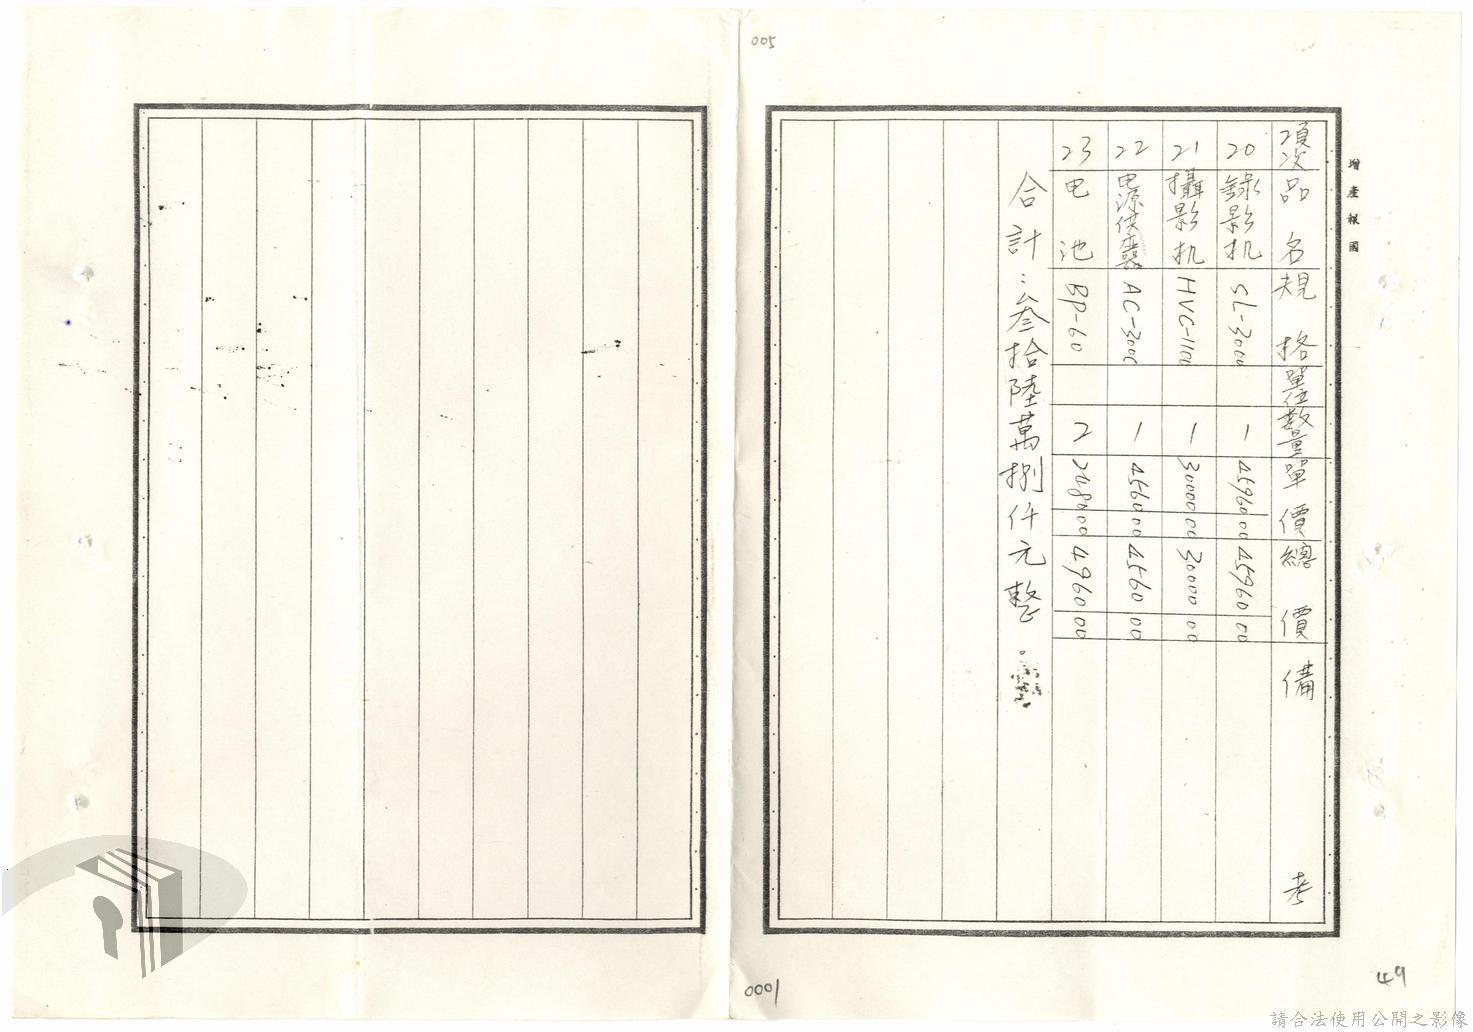 005
增產報國
項次 品名 規格 單位 數量 單價 總價 備考
20 錄影机 SL-3000 1 45960 00 45960 00
21 攝影机 HVC-1100 1 30000 00 30000 00
22 电源供應器 AC-300C 1 4560 00 4560 00
23 电池 BP-60 2 2480 00 4960 00
合計：叁拾陸萬捌仟元整。
0001
49
請合法使用公開之影像